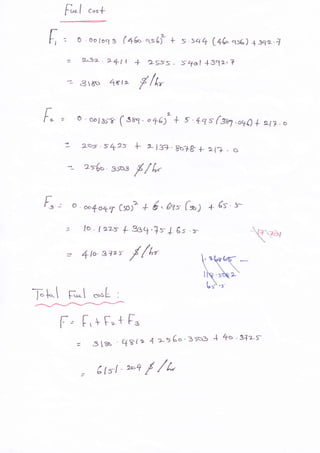 Fuel cost
F₁ = 0.001093 (460.956)² + 5.544 (460.956) + 392.7
= 232.2411 + 2555.5401 + 392.7
= 3180.4812 $/hr
F₂ = 0.001358 (389.046)² + 5.495 (389.046) + 217.0
= 205.5425 + 2137.8078 + 217.0
= 2560.3503 $/hr
F₃ = 0.004049 (50)² + 6.695 (50) + 65.5
= 10.1225 + 334.75 + 65.5
= 410.3725 $/hr
65.5
Total Fuel cost :
F = F₁ + F₂ + F₃
= 3180.4812 + 2560.3503 + 410.3725
= 6151.204 $/hr